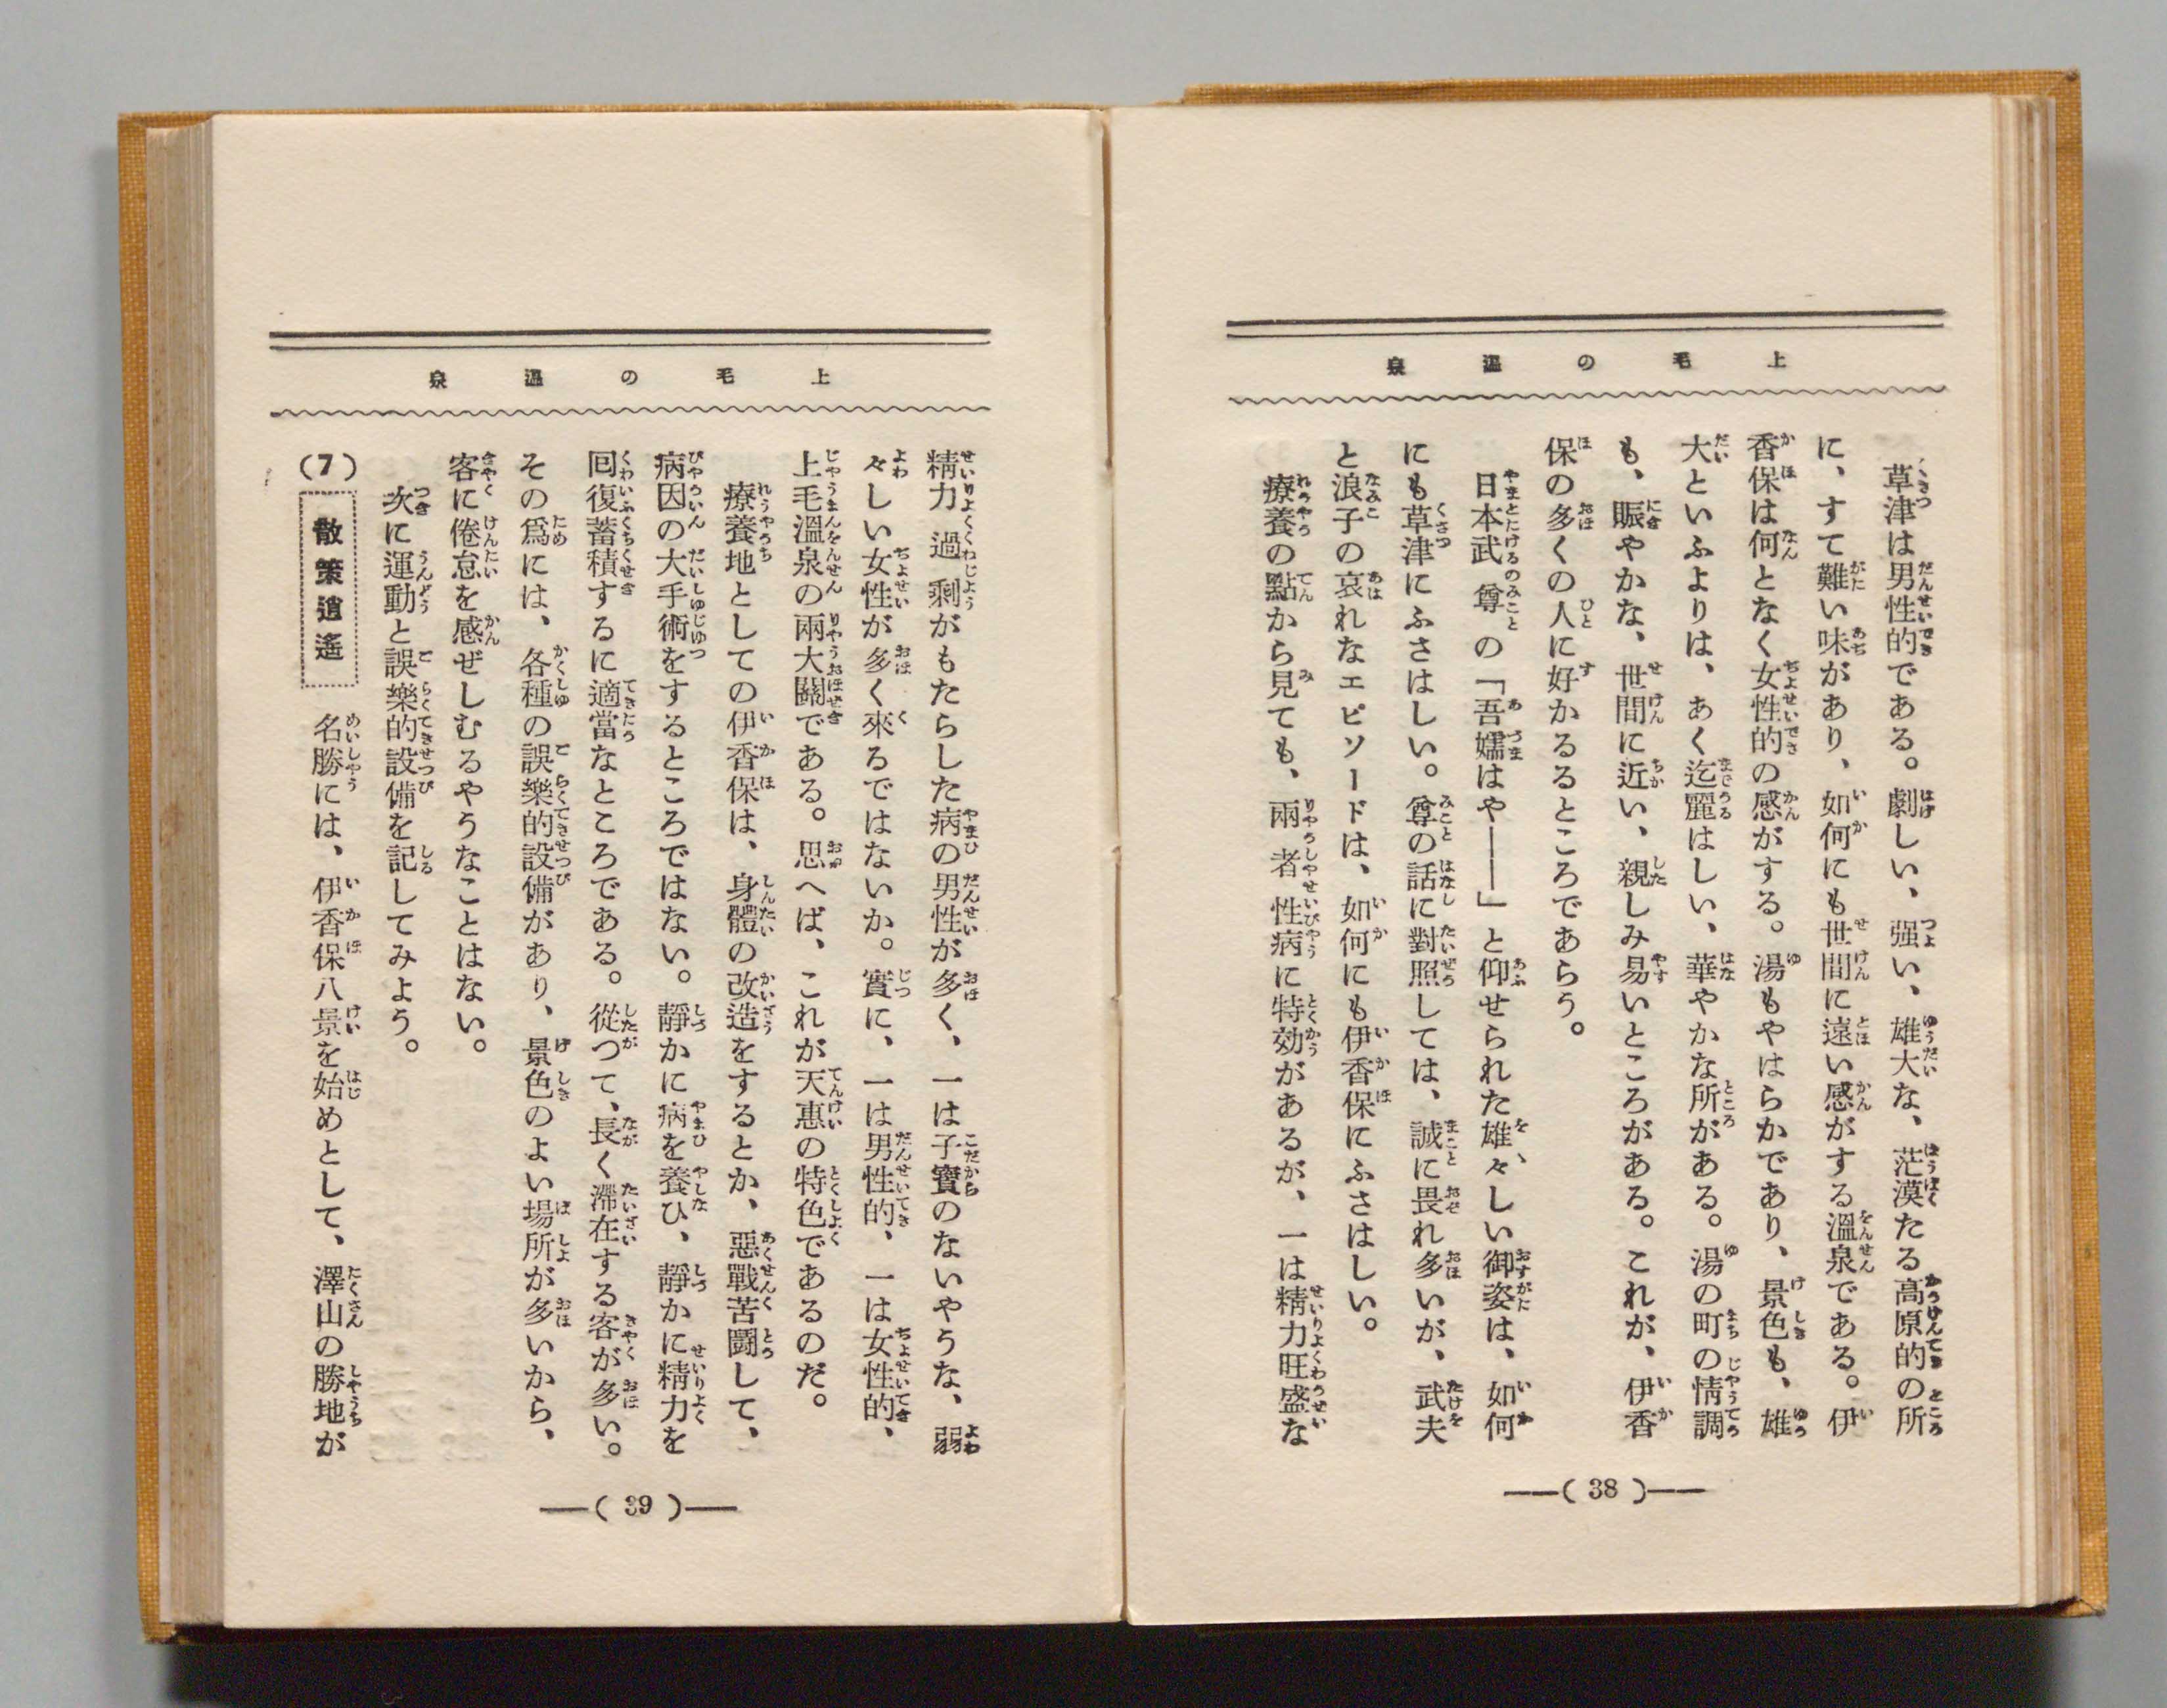 上毛の溫泉
草津は男性的である。劇しい、强い、雄大な、茫漠たる高原的の所
に、すて難い味があり、如何にも世間に遠い感がする溫泉である。伊
香保は何となく女性的の感がする。湯もやはらかであり、景色も、雄
大といふよりは、あく迄麗はしい、華やかな所がある。湯の町の情調
も、賑やかな、世間に近い、親しみ易いところがある。これが、伊香
保の多くの人に好かるるところであらう。
日本武尊の「吾嬬はや――」と仰せられた雄々しい御姿は、如何
にも草津にふさはしい。尊の話に對照しては、誠に畏れ多いが、武夫
と浪子の哀れなエピソードは、如何にも伊香保にふさはしい。
療養の點から見ても、兩者性病に特効があるが、一は精力旺盛な
―( 38 )―
上毛の溫泉
精力過剩がもたらした病の男性が多く、一は子寶のないやうな、弱
々しい女性が多く來るではないか。實に、一は男性的、一は女性的、
上毛溫泉の兩大關である。思へば、これが天惠の特色であるのだ。
療養地としての伊香保は、身體の改造をするとか、惡戰苦鬪して、
病因の大手術をするところではない。靜かに病を養ひ、靜かに精力を
囘復蓄積するに適當なところである。從つて、長く滯在する客が多い。
その爲には、各種の誤樂的設備があり、景色のよい場所が多いから、
客に倦怠を感ぜしむるやうなことはない。
次に運動と誤樂的設備を記してみよう。
(7) 散策逍遙 名勝には、伊香保八景を始めとして、澤山の勝地が
―( 39 )―